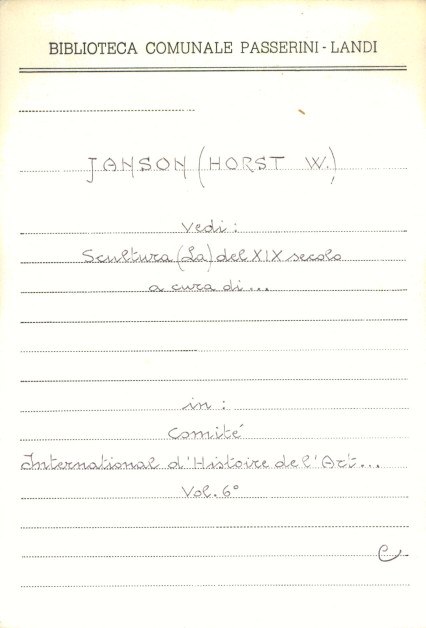 BIBLIOTECA COMUNALE PASSERINI - LANDI
JANSON (HORST W.)
Vedi:
Scultura (La) del XIX secolo
a cura di...
in:
Comité
International d'Histoire de l'Art...
Vol. 6°
C